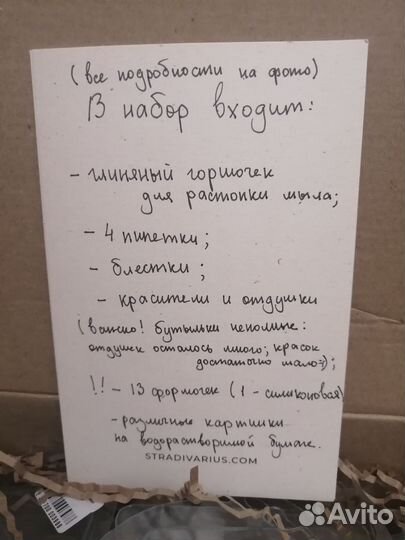 (все подробности на фото)
В набор входит:
- глиняный горшочек
для растопки мыла;
- 4 пипетки;
- блестки;
- красители и отдушки
(важно! бутыльки неполные:
отдушек осталось много; красок
достаточно мало);
!! - 13 формочек (1 - силиконовая)
- различные картинки
на водорастворимой бумаге.
STRADIVARIUS.COM
Avito